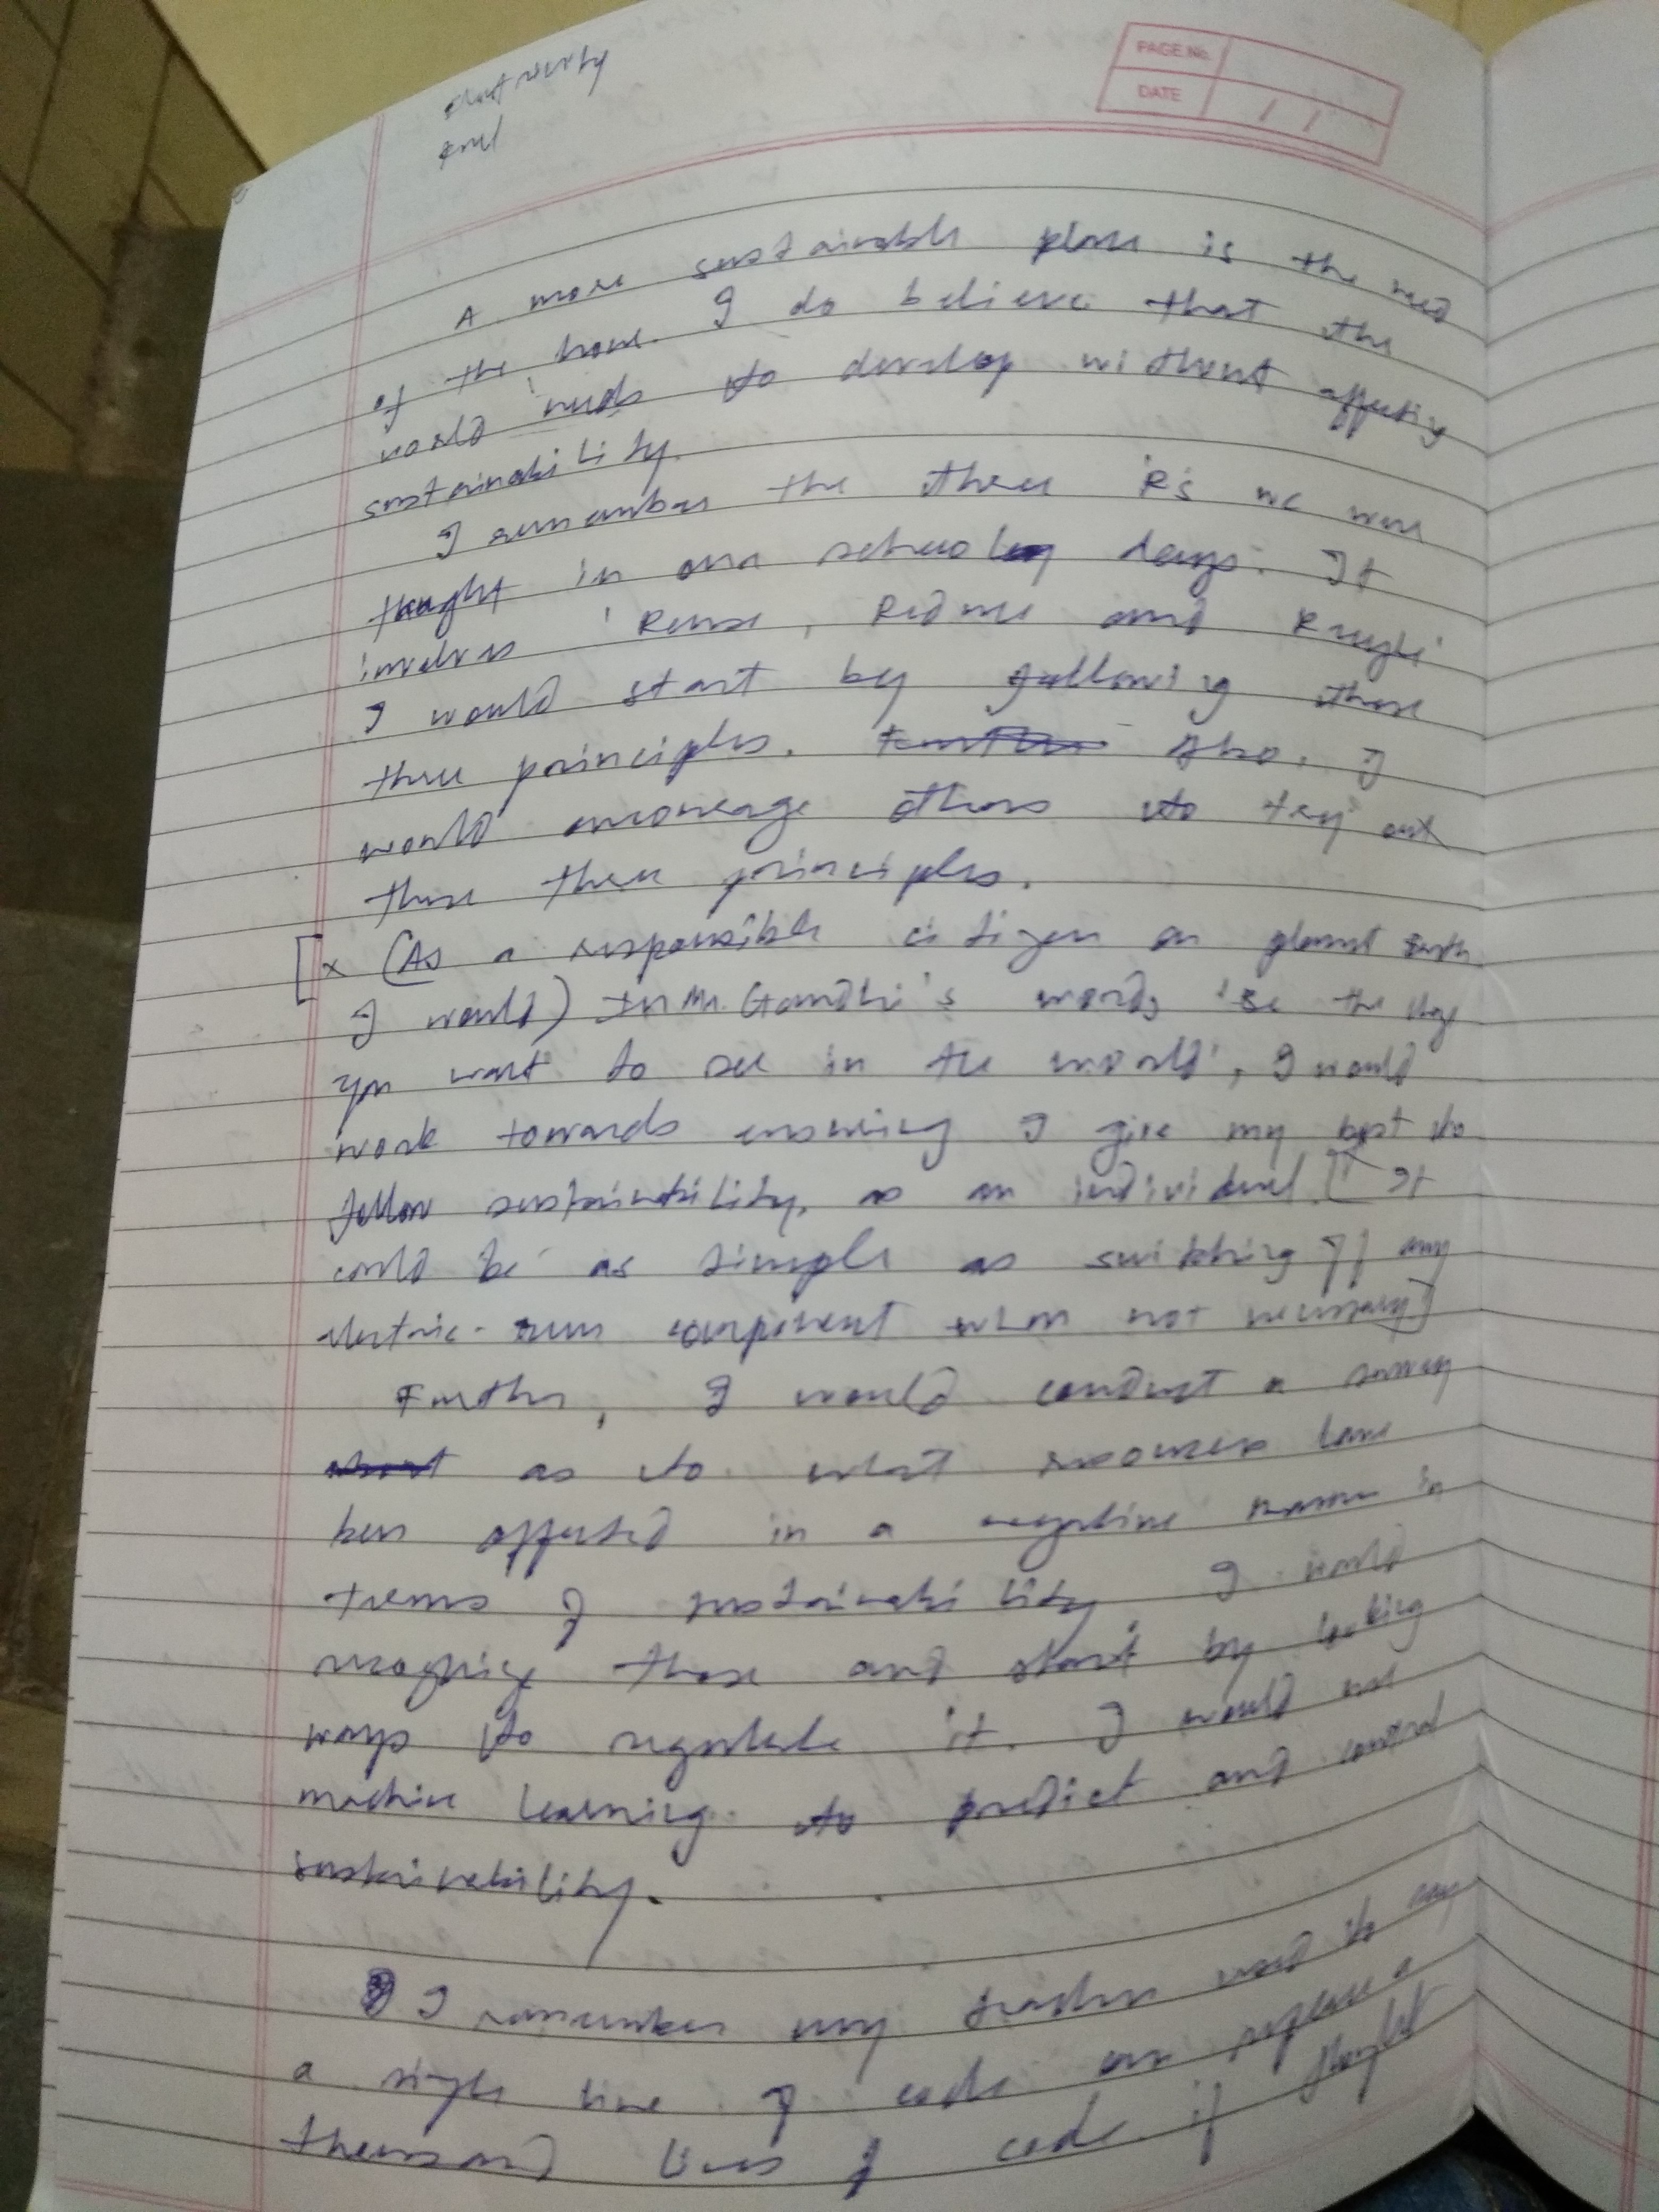 PAGE No.
DATE / /
electricity
fuel
A more sustainable place is the need
of the hour. I do believe that the
world needs to develop without affecting
sustainability.
I remember the three R's we were
taught in our school days. It
involves 'Reuse, Reduce and Recycle'
I would start by following these
three principles. Also, I
would encourage others to try out
these three principles.
[x (As a responsible citizen on planet Earth
I would) In Mr. Gandhi's words 'Be the
you want to see in the world', I would
work towards ensuring I give my best to
follow sustainability, as an individual. [It
could be as simple as switching off any
electric-run component when not necessary]
Further, I would conduct a survey
about as to what resources have
been affected in a negative manner in
terms of sustainability. I would
recognize those and start by looking
ways to regulate it. I would use
machine learning to predict and control
sustainability.
I remember my teacher used to say
a single line of code can replace a
thousand lines of code if thought